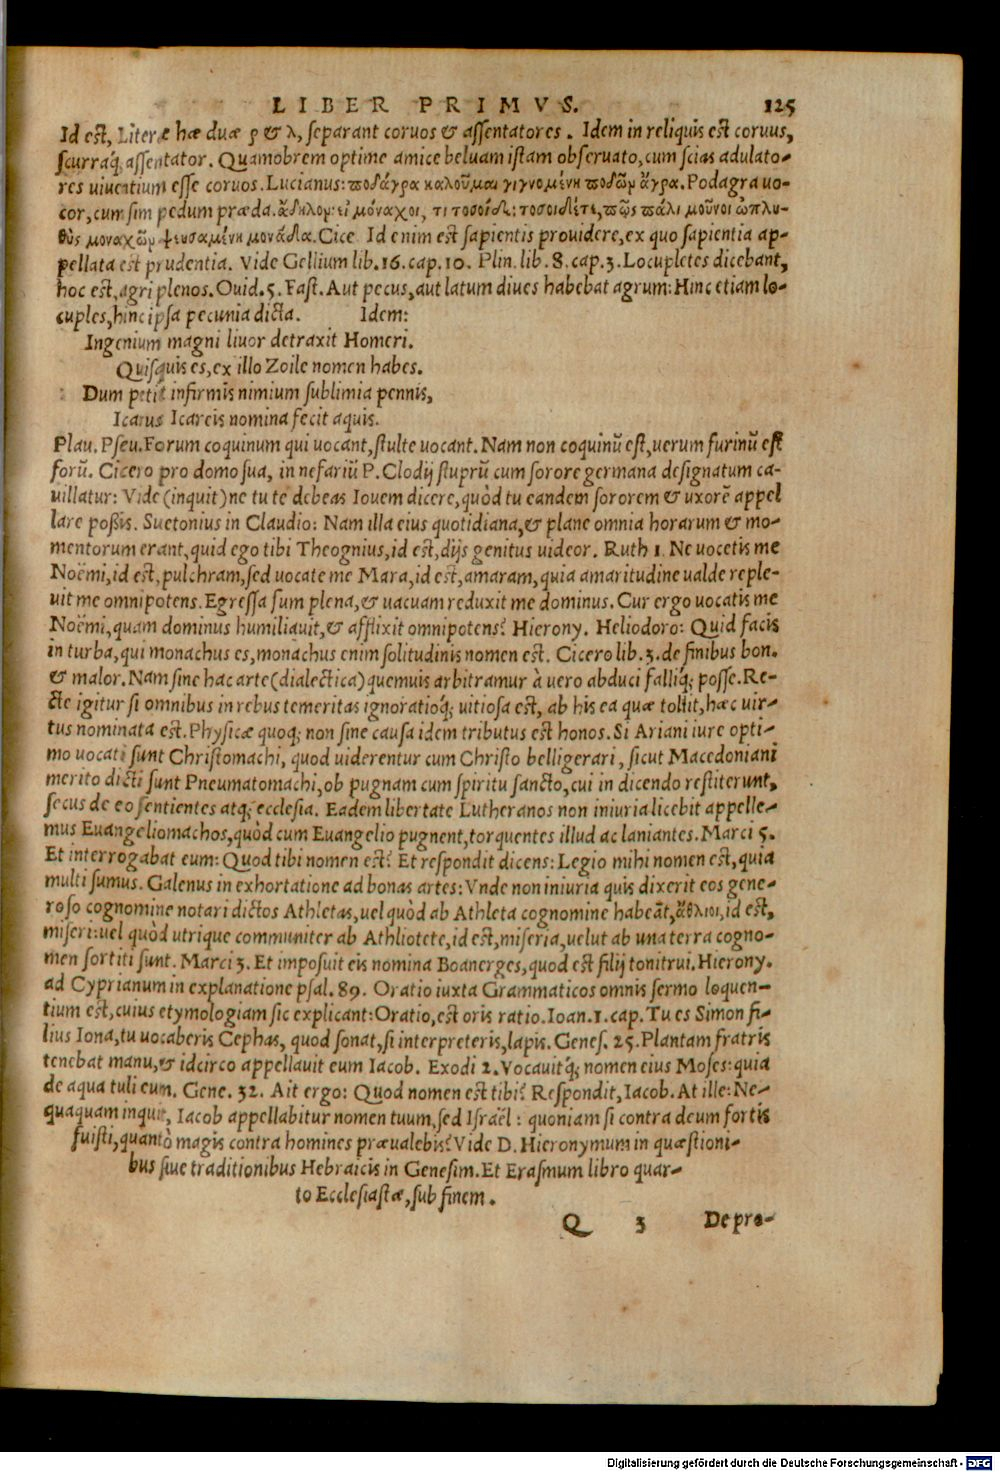 LIBER PRIMVS. 125
Id est, Literæ hæ duæ ρ & λ, separant coruos & assentatores. Idem in reliquis est coruus,
scurraq́; assentator. Quamobrem optime amice beluam istam obseruato, cum scias adulato-
res viuentium esse coruos. Lucianus: ποδάγρα καλοῦμαι γιγνομένη ποδῶν ἄγρα. Podagra uo-
cor, cum sim pedum præda. ἄδηλον· εἰ μόναχοι, τι τοσοίδε; τοσοιδέτε, πῶς πάλι μοῦνοι ὠ πλη-
θὺς μοναχῶν ψευσαμένη μονάδα. Cice Id enim est sapientis prouidere, ex quo sapientia ap-
pellata est prudentia. Vide Gellium lib. 16. cap. 10. Plin. lib. 8. cap. 3. Locupletes dicebant,
hoc est, agri plenos. Ouid. 5. Fast. Aut pecus, aut latum diues habebat agrum: Hinc etiam lo-
cuples, hinc ipsa pecunia dicta. Idem:
Ingenium magni liuor detraxit Homeri.
Quisquis es, ex illo Zoile nomen habes.
Dum petit infirmis nimium sublimia pennis,
Icarus Icareis nomina fecit aquis.
Plau. Pseu. Forum coquinum qui uocant, stulte uocant. Nam non coquinū est, uerum furinū est
forū. Cicero pro domo sua, in nefariū P. Clodij stuprū cum sorore germana designatum ca-
uillatur: Vide (inquit) ne tu te debeas Iouem dicere, quòd tu eandem sororem & uxorē appel
lare poßis. Suetonius in Claudio: Nam illa eius quotidiana, & plane omnia horarum & mo-
mentorum erant, quid ego tibi Theognius, id est, dijs genitus uideor. Ruth 1. Ne uocetis me
Noëmi, id est, pulchram, sed uocate me Mara, id est, amaram, quia amaritudine ualde reple-
uit me omnipotens. Egressa sum plena, & uacuam reduxit me dominus. Cur ergo uocatis me
Noëmi, quam dominus humiliauit, & afflixit omnipotens? Hierony. Heliodoro: Quid facis
in turba, qui monachus es, monachus enim solitudinis nomen est. Cicero lib. 3. de finibus bon.
& malor. Nam sine hac arte (dialectica) quemuis arbitramur à uero abduci falliq́; posse. Re-
cte igitur si omnibus in rebus temeritas ignoratioq́; uitiosa est, ab his ea quæ tollit, hæc uir-
tus nominata est. Physicæ quoq; non sine causa idem tributus est honos. Si Ariani iure opti-
mo uocati sunt Christomachi, quod uiderentur cum Christo belligerari, sicut Macedoniani
merito dicti sunt Pneumatomachi, ob pugnam cum spiritu sancto, cui in dicendo restiterunt,
secus de eo sentientes atq; ecclesia. Eadem libertate Lutheranos non iniuria licebit appelle-
mus Euangeliomachos, quòd cum Euangelio pugnent, torquentes illud ac laniantes. Marci 5.
Et interrogabat eum: Quod tibi nomen est? Et respondit dicens: Legio mihi nomen est, quia
multi sumus. Galenus in exhortatione ad bonas artes: Vnde non iniuria quis dixerit eos gene-
roso cognomine notari dictos Athletas, uel quòd ab Athleta cognomine habeāt, ἄθλιοι, id est,
miseri: uel quòd utrique communiter ab Athliotete, id est, miseria, uelut ab una terra cogno-
men sortiti sunt. Marci 3. Et imposuit eis nomina Boanerges, quod est filij tonitrui. Hierony.
ad Cyprianum in explanatione psal. 89. Oratio iuxta Grammaticos omnis sermo loquen-
tium est, cuius etymologiam sic explicant: Oratio, est oris ratio. Ioan. 1. cap. Tu es Simon fi-
lius Iona, tu uocaberis Cephas, quod sonat, si interpreteris, lapis. Genes. 25. Plantam fratris
tenebat manu, & idcirco appellauit eum Iacob. Exodi 2. Vocauitq́; nomen eius Moses: quia
de aqua tuli eum. Gene. 32. Ait ergo: Quod nomen est tibi? Respondit, Iacob. At ille: Ne-
quaquam inquit, Iacob appellabitur nomen tuum, sed Israël: quoniam si contra deum fortis
fuisti, quantò magis contra homines præualebis? Vide D. Hieronymum in quæstioni-
bus siue traditionibus Hebraicis in Genesim. Et Erasmum libro quar-
to Ecclesiastæ, sub finem.
Q 3 De pro-
Digitalisierung gefördert durch die Deutsche Forschungsgemeinschaft - DFG